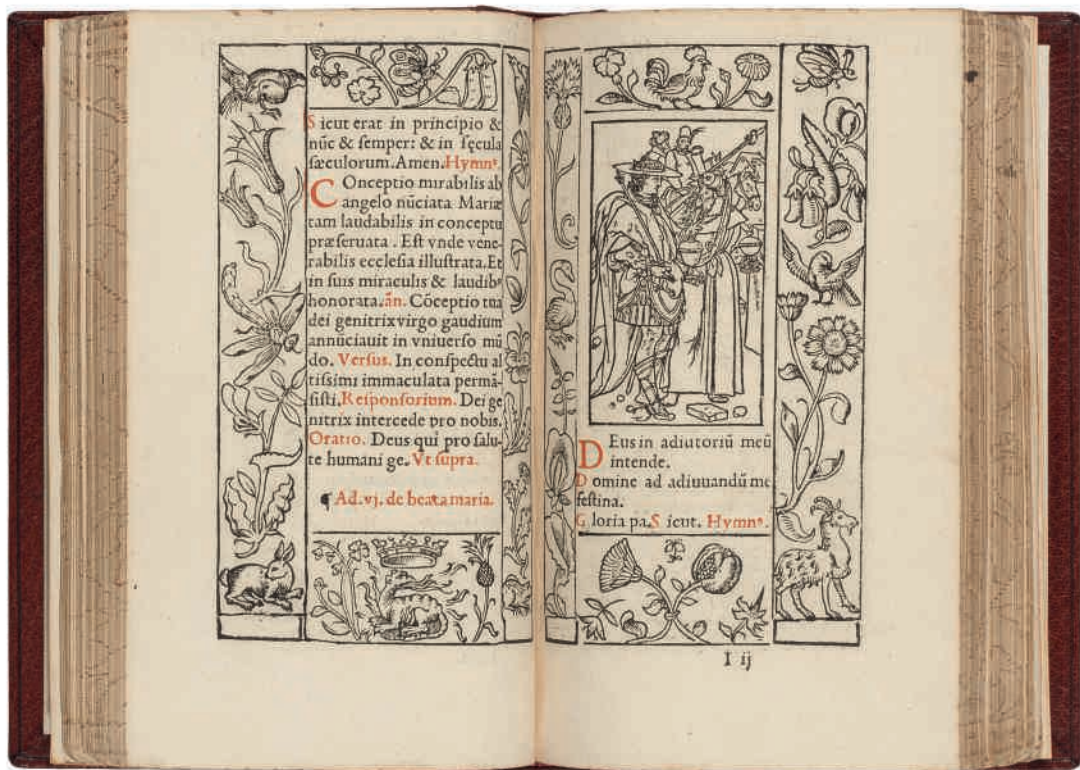 Sicut erat in principio &
nūc & ſemper: & in ſęcula
ſæculorum. Amen. Hymnꝰ.
COnceptio mirabilis ab
angelo nūciata Mariæ
tam laudabilis in conceptu
præſeruata . Eſt vnde vene-
rabilis eccleſia illuſtrata. Et
in ſuis miraculis & laudibꝰ
honorata. ān. Cōceptio tua
dei genitrix virgo gaudium
annūciauit in vniuerſo mū
do. Verſus. In conſpectu al
tiſſimi immaculata permā-
ſiſti. Reſponſorium. Dei ge
nitrix intercede pro nobis.
Oratio. Deus qui pro ſalu-
te humani ge. Vt ſupra.
¶ Ad .vj. de beata maria.
DEus in adiutoriū meū
intende.
Domine ad adiuuandū me
feſtina.
Gloria pa. Sicut. Hymnꝰ.
I ij